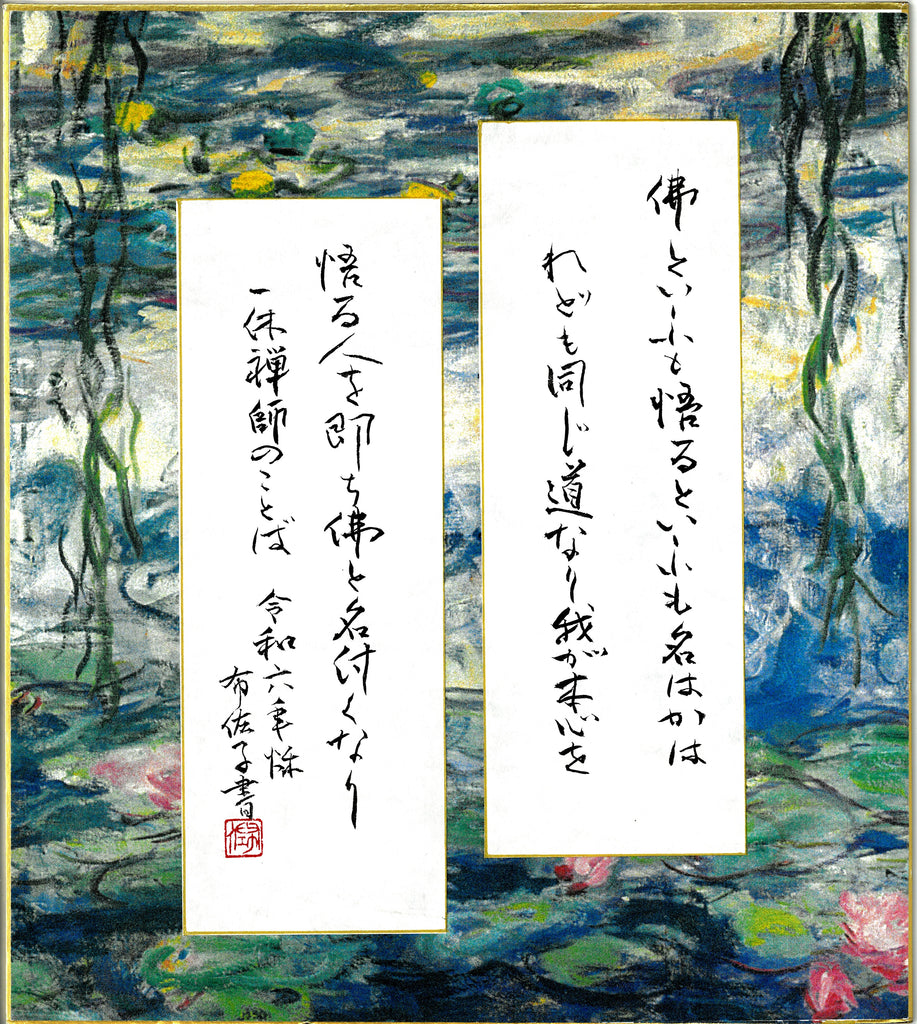 佛といふも悟るといふも名はかは
れども同じ道なり我が本心を
悟る人を即ち佛と名付くなり
一休禅師のことば
令和六年秋
布佐子書